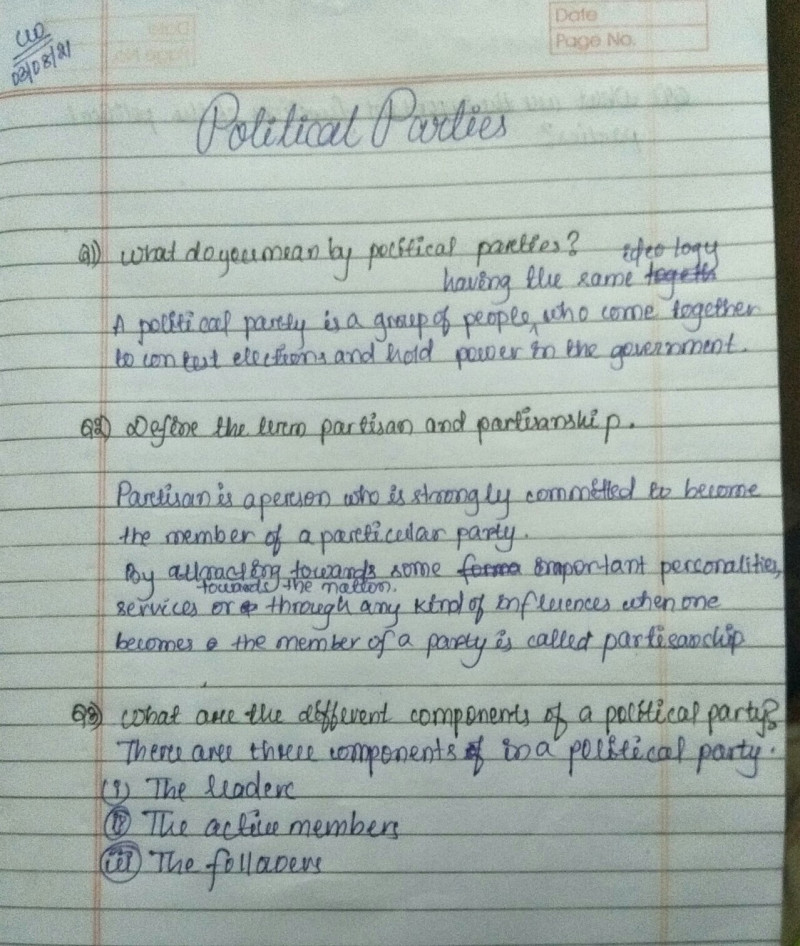 CW
03/08/21
Date
Page No.
Political Parties
Q1) What do you mean by political parties?
ideology
having the same
A political party is a group of people, who come together
to contest elections and hold power in the government.
Q2) Define the term partisan and partisanship.
Partisan is a person who is strongly committed to become
the member of a particular party.
By attracting towards some important personalities,
towards the nation.
services or through any kind of influences when one
becomes the member of a party is called partisanship
Q3) What are the different components of a political party?
There are three components in a political party.
(i) The leader
(ii) The active members
(iii) The followers